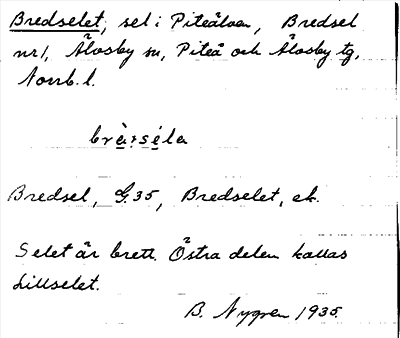 Bredselet, sel i Piteälven, Bredsel
nr 1, Älvsby sn, Piteå och Älvsby tg,
Norrb. l.
brè:séla
Bredsel, G.35, Bredselet, ek.
Selet är brett. Östra delen kallas
Lillselet.
B. Nygren 1935.